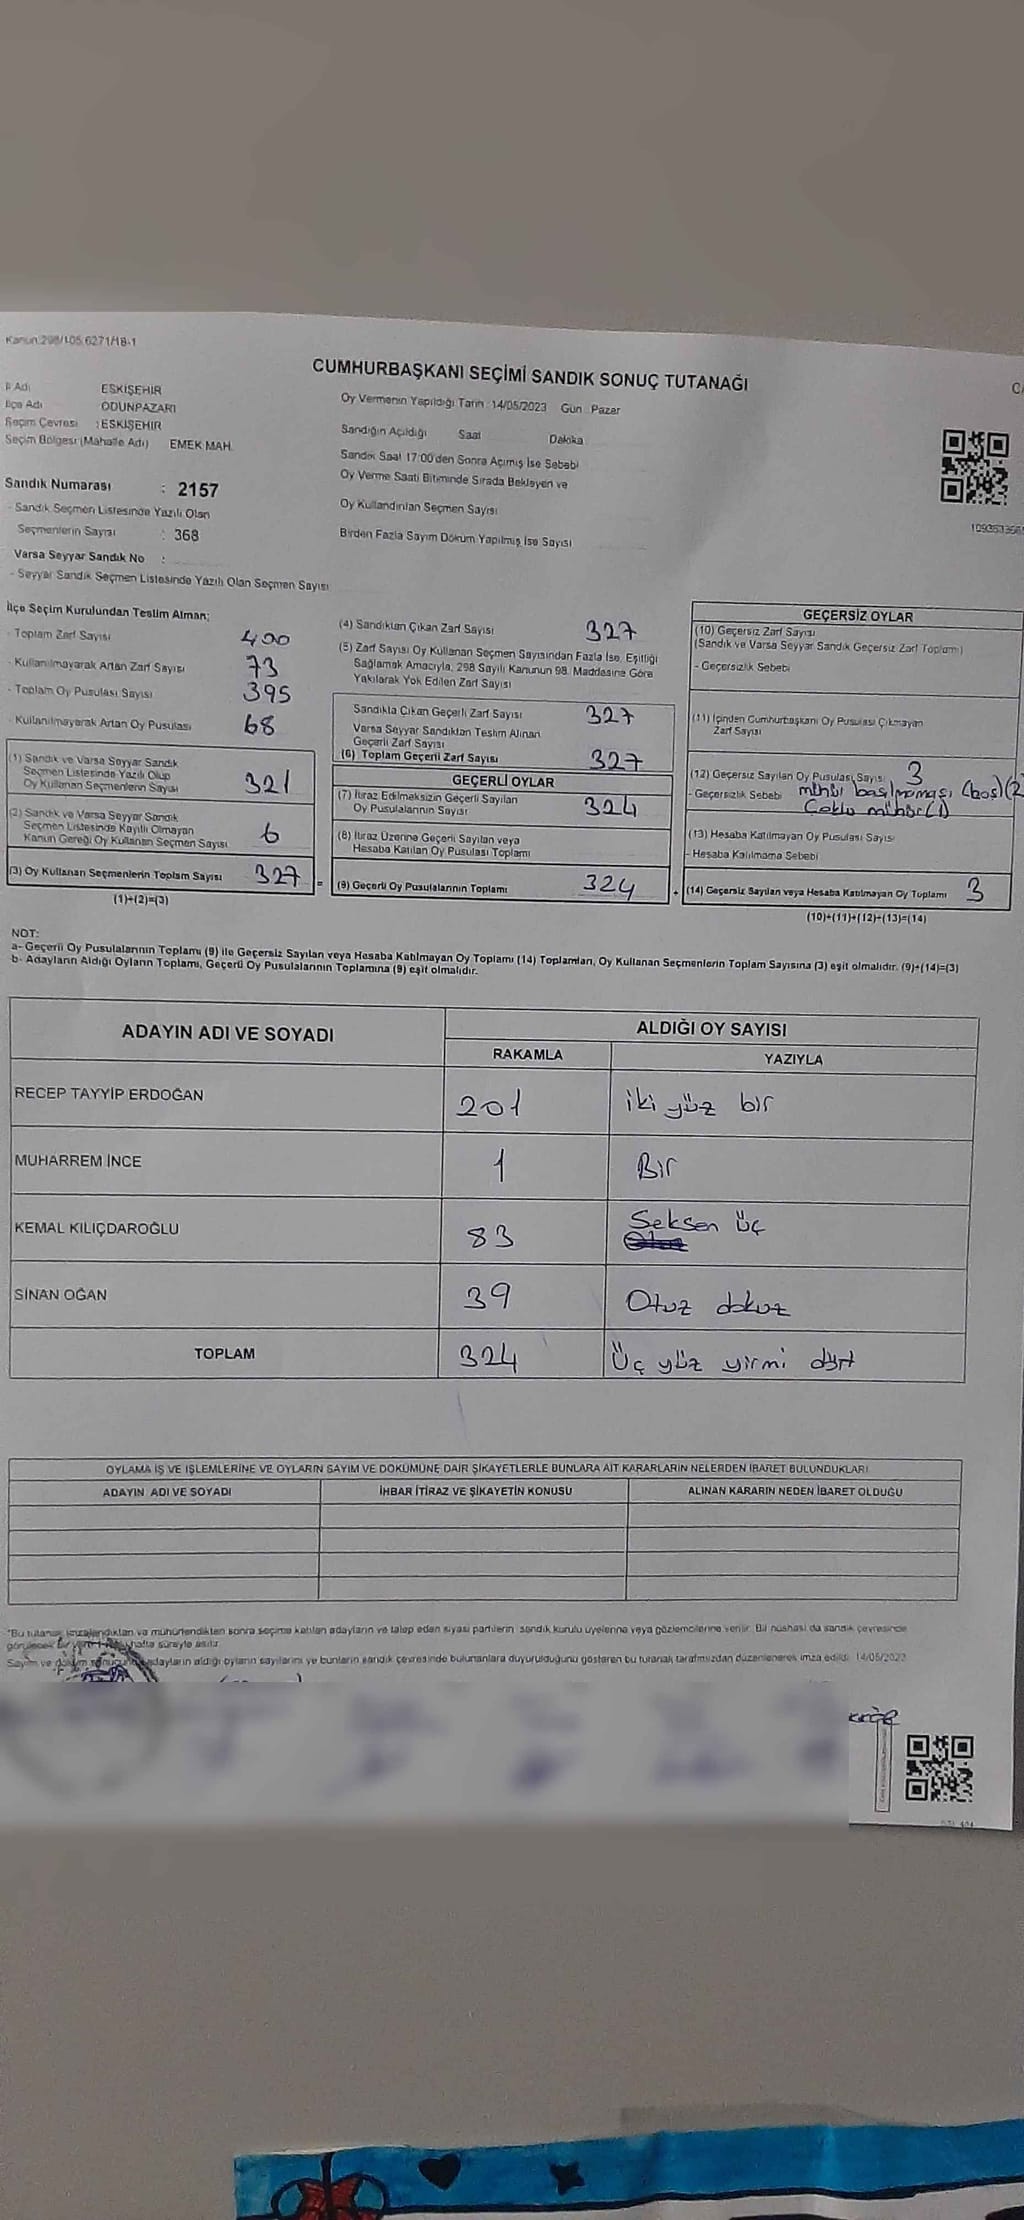 Kanun:298/105,6271/18-1
CUMHURBAŞKANI SEÇİMİ SANDIK SONUÇ TUTANAĞI
İl Adı ESKİŞEHİR
İlçe Adı ODUNPAZARI
Seçim Çevresi :ESKİŞEHİR
Seçim Bölgesi (Mahalle Adı) EMEK MAH.
Sandık Numarası : 2157
- Sandık Seçmen Listesinde Yazılı Olan
Seçmenlerin Sayısı : 368
Varsa Seyyar Sandık No :
- Seyyar Sandık Seçmen Listesinde Yazılı Olan Seçmen Sayısı
Oy Vermenin Yapıldığı Tarih :14/05/2023 Gün : Pazar
Sandığın Açıldığı Saat Dakika
Sandık Saat 17:00'den Sonra Açılmış İse Sebebi
Oy Verme Saati Bitiminde Sırada Bekleyen ve
Oy Kullandırılan Seçmen Sayısı
Birden Fazla Sayım Döküm Yapılmış İse Sayısı
İlçe Seçim Kurulundan Teslim Alınan;
- Toplam Zarf Sayısı 400
- Kullanılmayarak Artan Zarf Sayısı 73
- Toplam Oy Pusulası Sayısı 395
- Kullanılmayarak Artan Oy Pusulası 68
(1) Sandık ve Varsa Seyyar Sandık
Seçmen Listesinde Yazılı Olup
Oy Kullanan Seçmenlerin Sayısı 321
(2) Sandık ve Varsa Seyyar Sandık
Seçmen Listesinde Kayıtlı Olmayan
Kanun Gereği Oy Kullanan Seçmen Sayısı 6
(3) Oy Kullanan Seçmenlerin Toplam Sayısı 327
(1)+(2)=(3)
=
(4) Sandıktan Çıkan Zarf Sayısı 327
(5) Zarf Sayısı Oy Kullanan Seçmen Sayısından Fazla İse, Eşitliği
Sağlamak Amacıyla, 298 Sayılı Kanunun 98. Maddesine Göre
Yakılarak Yok Edilen Zarf Sayısı
Sandıkta Çıkan Geçerli Zarf Sayısı 327
Varsa Seyyar Sandıktan Teslim Alınan
Geçerli Zarf Sayısı
(6) Toplam Geçerli Zarf Sayısı 327
GEÇERLİ OYLAR
(7) İtiraz Edilmeksizin Geçerli Sayılan
Oy Pusulalarının Sayısı 324
(8) İtiraz Üzerine Geçerli Sayılan veya
Hesaba Katılan Oy Pusulası Toplamı
(9) Geçerli Oy Pusulalarının Toplamı 324
+
GEÇERSİZ OYLAR
(10) Geçersiz Zarf Sayısı
(Sandık ve Varsa Seyyar Sandık Geçersiz Zarf Toplamı)
- Geçersizlik Sebebi
(11) İçinden Cumhurbaşkanı Oy Pusulası Çıkmayan
Zarf Sayısı
(12) Geçersiz Sayılan Oy Pusulası Sayısı 3
- Geçersizlik Sebebi mühür basılmaması (boş) (2
Çoklu mühür (1)
(13) Hesaba Katılmayan Oy Pusulası Sayısı
- Hesaba Katılmama Sebebi
(14) Geçersiz Sayılan veya Hesaba Katılmayan Oy Toplamı 3
(10)+(11)+(12)+(13)=(14)
NOT:
a- Geçerli Oy Pusulalarının Toplamı (9) ile Geçersiz Sayılan veya Hesaba Katılmayan Oy Toplamı (14) Toplamları, Oy Kullanan Seçmenlerin Toplam Sayısına (3) eşit olmalıdır. (9)+(14)=(3)
b- Adayların Aldığı Oyların Toplamı, Geçerli Oy Pusulalarının Toplamına (9) eşit olmalıdır.
ADAYIN ADI VE SOYADI ALDIĞI OY SAYISI
RAKAMLA YAZIYLA
RECEP TAYYİP ERDOĞAN 201 iki yüz bir
MUHARREM İNCE 1 Bir
KEMAL KILIÇDAROĞLU 83 Seksen üç
SİNAN OĞAN 39 Otuz dokuz
TOPLAM 324 Üç yüz yirmi dört
OYLAMA İŞ VE İŞLEMLERİNE VE OYLARIN SAYIM VE DÖKÜMÜNE DAİR ŞİKAYETLERLE BUNLARA AİT KARARLARIN NELERDEN İBARET BULUNDUKLARI
ADAYIN ADI VE SOYADI İHBAR İTİRAZ VE ŞİKAYETİN KONUSU ALINAN KARARIN NEDEN İBARET OLDUĞU
*Bu tutanak imzalandıktan ve mühürlendikten sonra seçime katılan adayların ve talep eden siyasi partilerin sandık kurulu üyelerine veya gözlemcilerine verilir. Bir nüshası da sandık çevresinde
görülecek bir yere 1 hafta süreyle asılır.
Sayım ve döküm sonucunu adayların aldığı oyların sayılarını ve bunların sandık çevresinde bulunanlara duyurulduğunu gösteren bu tutanak tarafımızdan düzenlenerek imza edildi. 14/05/2023